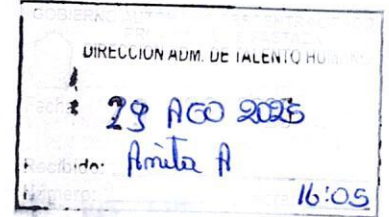 GOBIERNO AUTÓNOMO DESCENTRALIZADO
DIRECCIÓN ADM. DE TALENTO HUMANO
Fecha: 29 AGO 2025
Recibido: Anita A
Número: 16:05